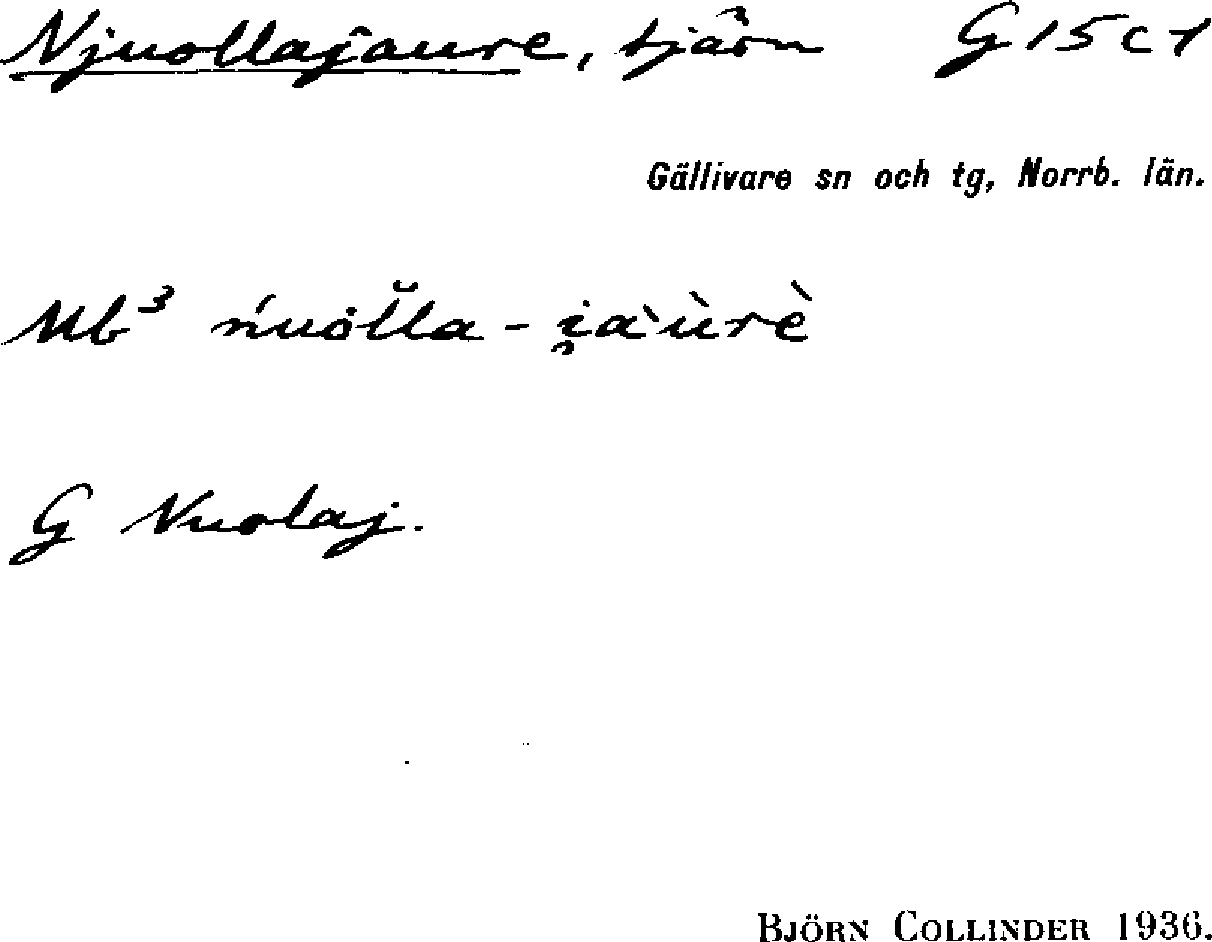 Njuollajaure, tjärn G15c1
Gällivare sn och tg, Norrb. län.
Mb³ ńuòl̆la - i̯a`ùrè
G Nuolaj.
BJÖRN COLLINDER 1936.